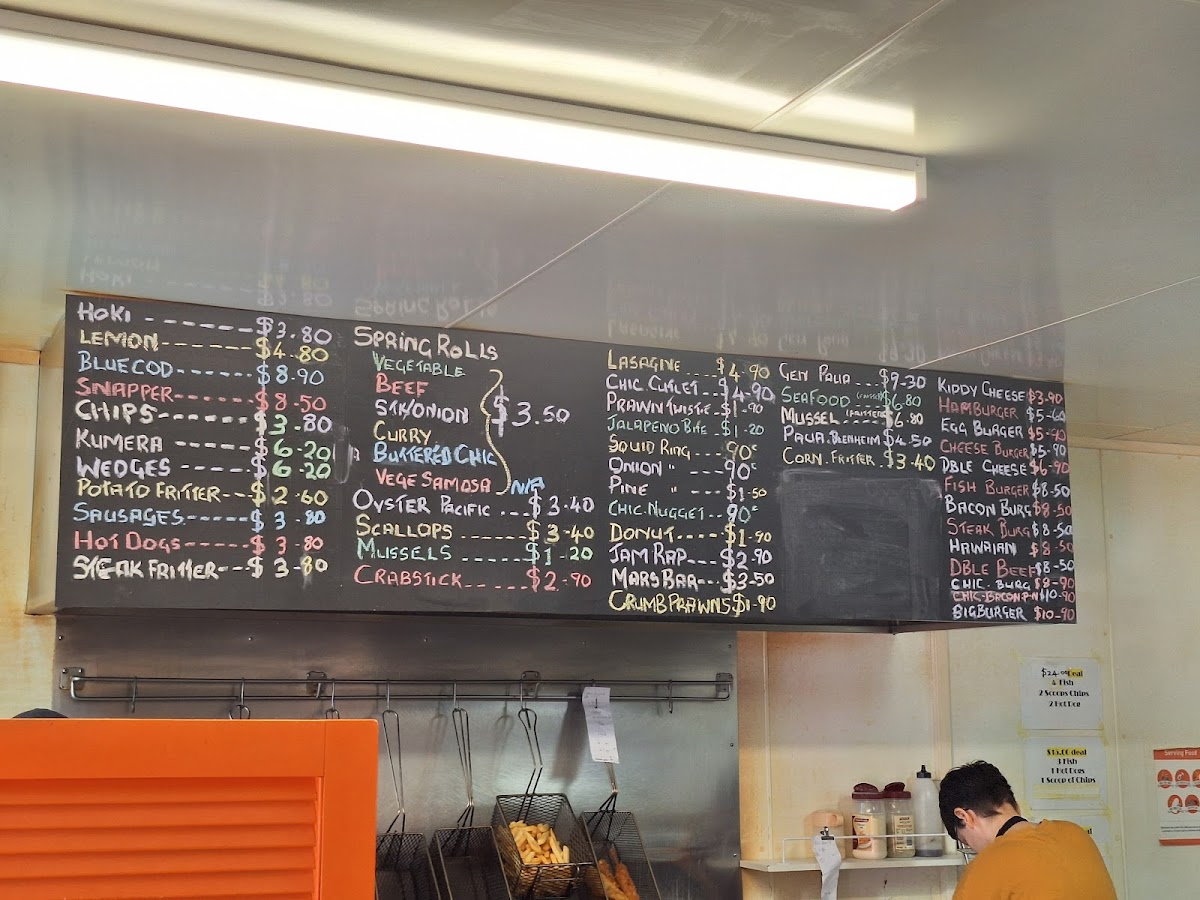 HOKI ---------- $3.80
LEMON ---------- $4.80
BLUE COD ------- $8.90
SNAPPER ------- $8.50
CHIPS -------- $3.80
KUMERA ------ $6.20
WEDGES ------ $6.20
POTATO FRITTER--- $2.60
SAUSAGES ------ $3.80
HOT DOGS ------ $3.80
STEAK FRITTER--- $3.80
SPRING ROLLS
VEGETABLE
BEEF
STK/ONION $3.50
CURRY
BUTTERED CHIC
VEGE SAMOSA N/A
OYSTER PACIFIC ... $3.40
SCALLOPS ------ $3.40
MUSSELS ------- $1.20
CRABSTICK ----- $2.90
LASAGNE .... $4.90
CHIC CUTLET... $4.90
PRAWN TWISTIE - $1.90
JALAPENO BITE - $1.20
SQUID RING --- 90c
ONION " --- 90c
PINE " --- $1.50
CHIC NUGGET -- 90c
DONUT ----- $1.90
JAM RAP --- $2.90
MARS BAR --- $3.50
CRUMB PRAWNS $1.90
GEN PAUA ... $9.30
SEAFOOD $6.80
MUSSEL (FRITTERS) $6.80
PAUA. BLENHEIM $4.50
CORN. FRITTER .. $3.40
KIDDY CHEESE $3.90
HAMBURGER $5.60
EGG BURGER $5.90
CHEESE BURGER $5.90
DBLE CHEESE $6.90
FISH BURGER $8.50
BACON BURG $8.50
STEAK BURG $8.50
HAWAIIAN $8.50
DBLE BEEF $8.50
CHIC. BURG $8.90
CHIC-BACON $10.90
BIG BURGER $10.90
$24.00 Deal
4 Fish
2 Scoops Chips
2 Hot Dog
$15.00 deal
1 Fish
1 Hot Dogs
1 Scoop of Chips
Serving Food